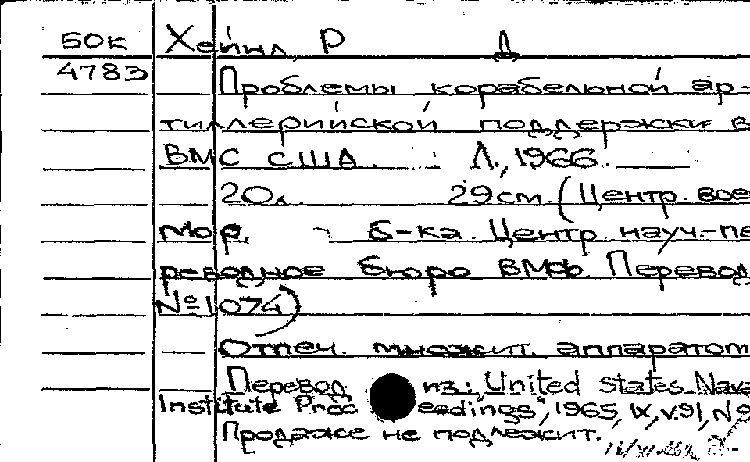 БОК Хейнл Р Д
4783 Проблемы корабельной ар-
тиллерийской поддержки в
ВМС США. Л., 1966.
20л. 29cm. (Центр. вое
мор. б-ка. Центр. науч.-пе
реводное бюро ВМФ. Перевод
№1074)
Отпеч. множит. аппаратом
Перевод из: United States Nava
Institute Proceedings, 1965, IX, v.91, N9
Продаже не подлежит.